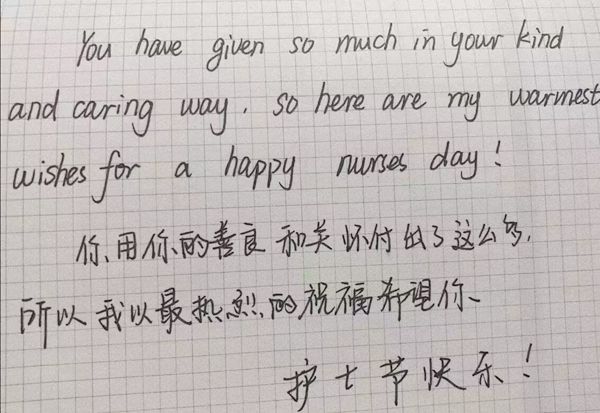 You have given so much in your kind
and caring way. so here are my warmest
wishes for a happy nurses day!
你用你的善良和关怀付出了这么多,
所以我以最热烈的祝福希望你
护士节快乐!